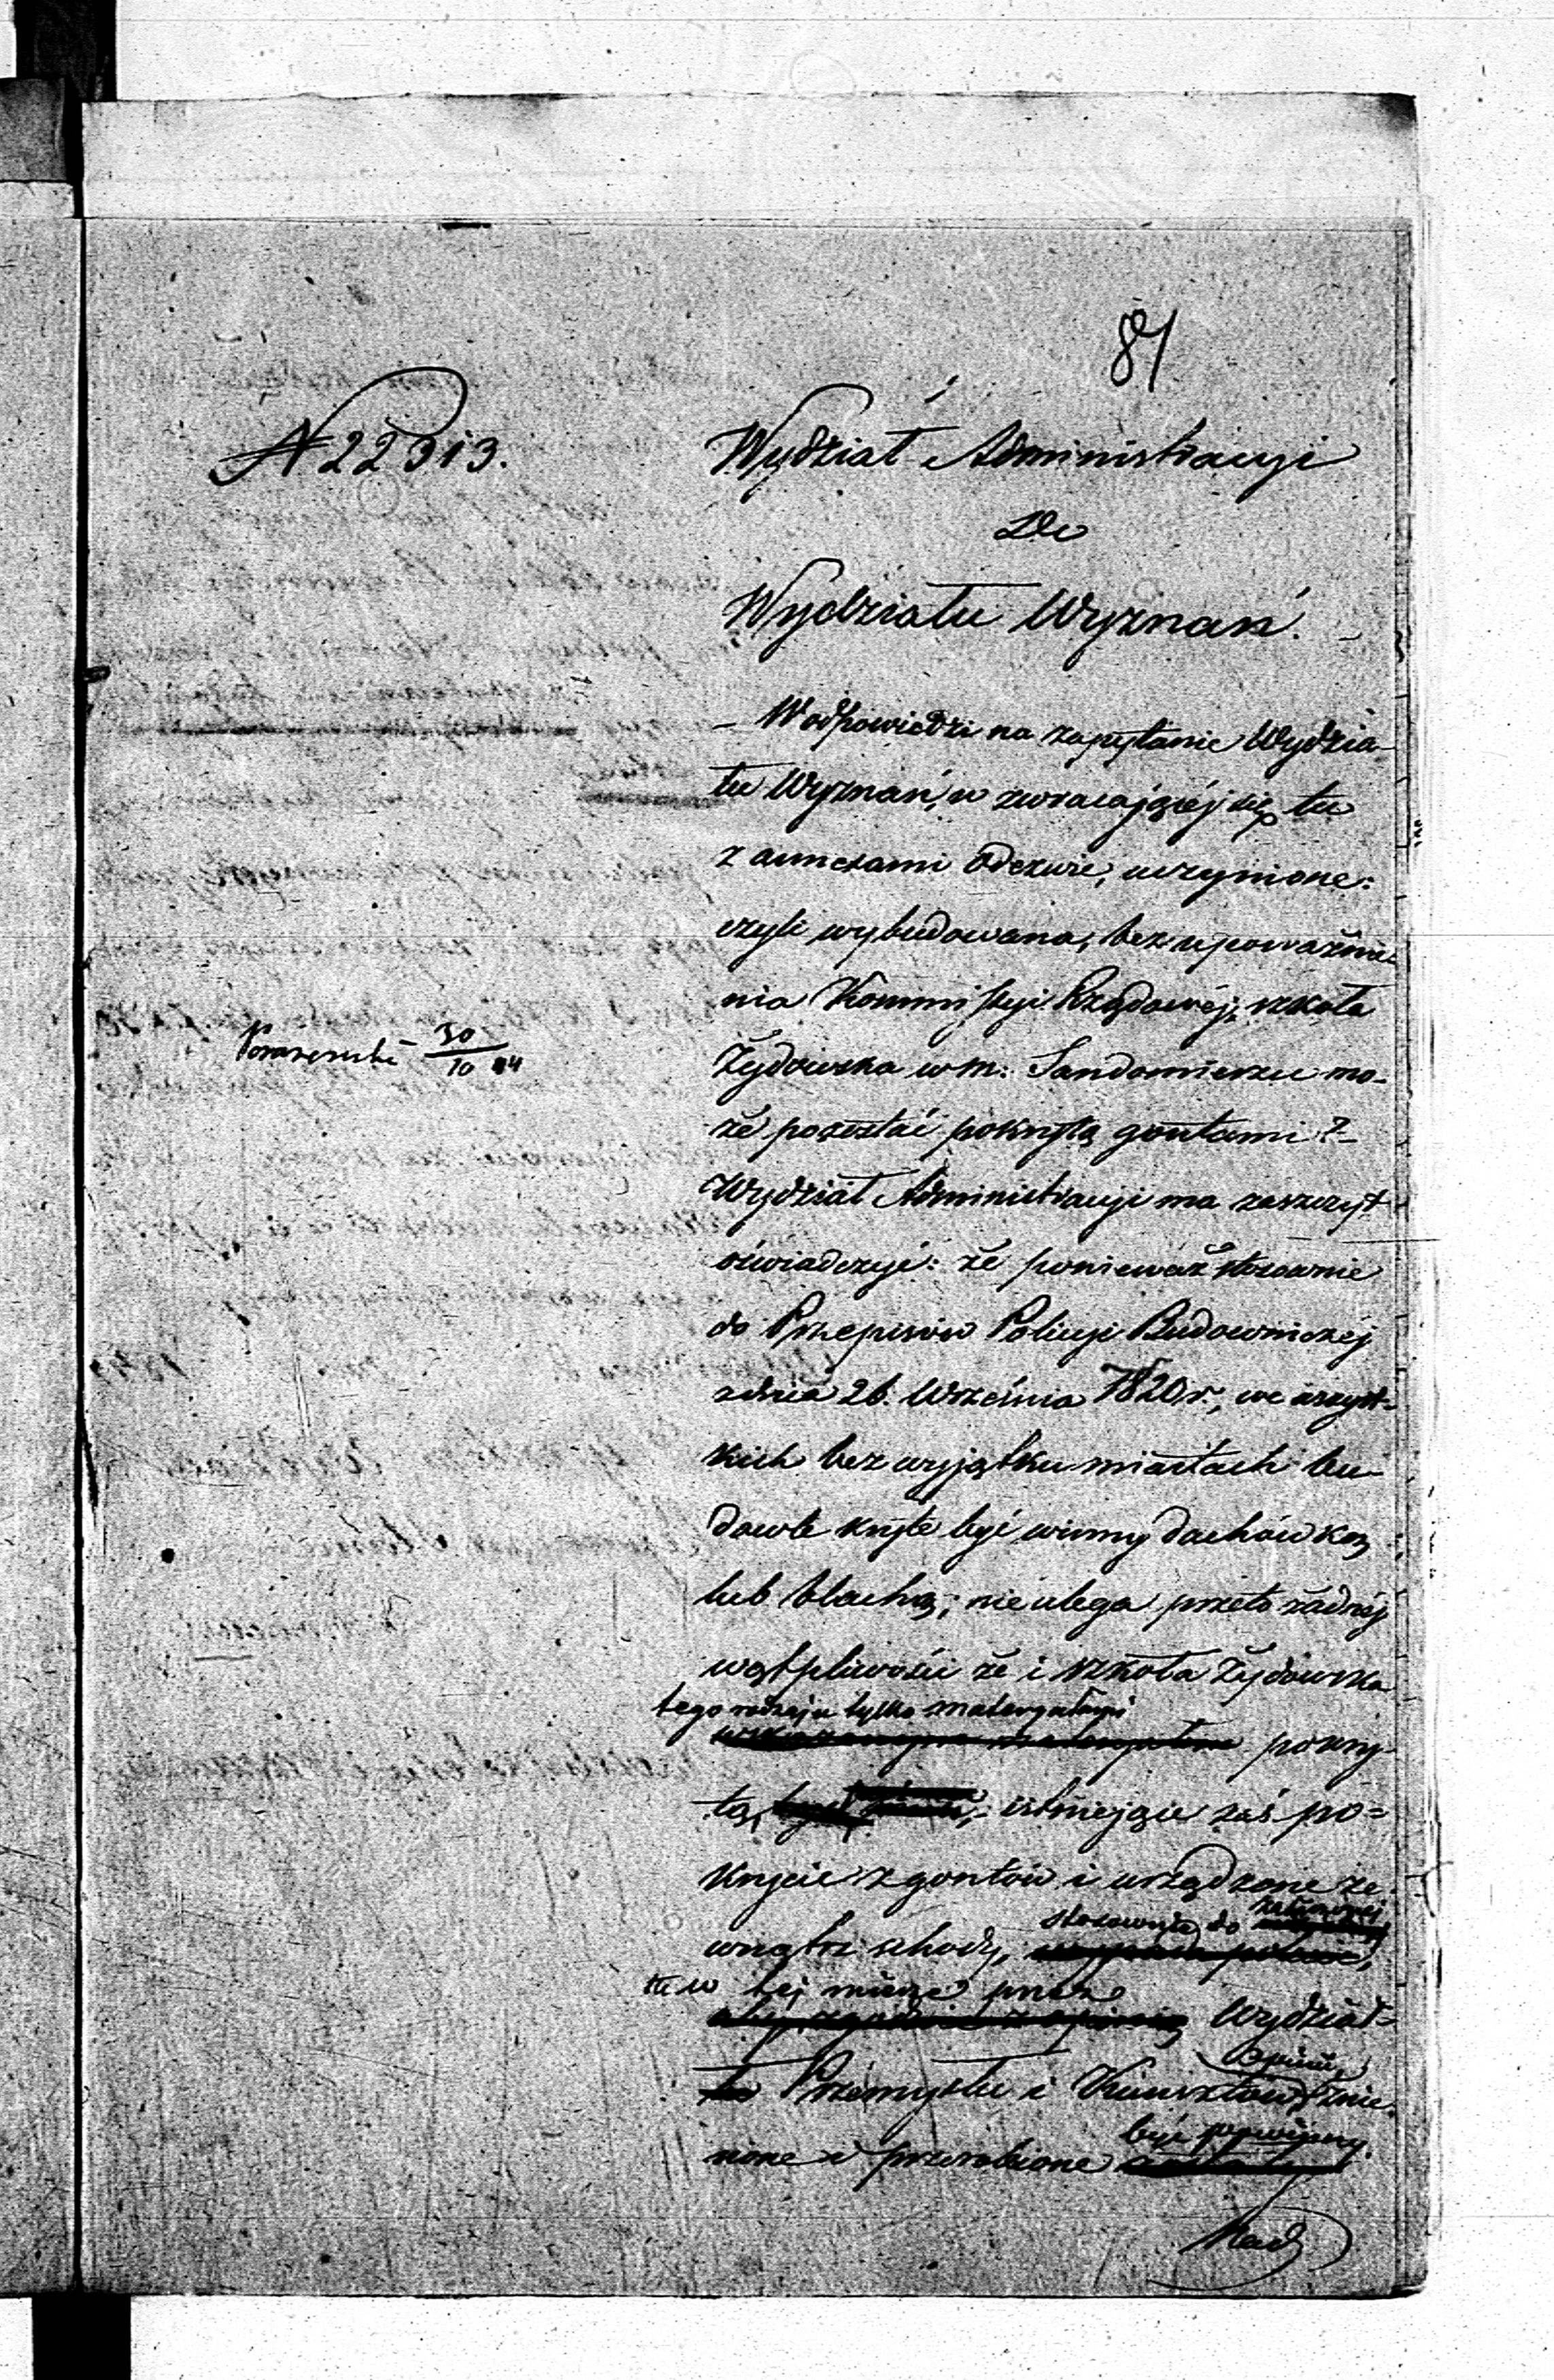 81
N 22313.
Wydział Administracyi
Do
Wydziału Wyznań.
– W odpowiedzi na zapytanie Wydzia-
łu Wyznań, w zwracającéj się tu
z annexami odezwie, uczynione:
czyli wybudowana, bez upoważnie-
nia Kommissyi Rządowéj, szkoła
30
10 44
Żydowska w m: Sandomierzu mo-
że pozostać pokrytą gontami? –
Wydział Administracyi ma zaszczyt
oświadczyć: że ponieważ stosownie
do Przepisów Policyi Budowniczéj
z dnia 26. Września 1820 r., we wszyst-
kich bez wyjątku miastach bu-
dowle kryte być winny dachówką
lub blachą; nie ulega przeto żadnéj
wątpliwości że i szkoła Żydowska
tego rodzaju tylko materyałami
pokry-
tą, istniejące zaś po=
krycie z gontów i urządzone ze-
wnątrz schody, stosownie do
w tej mierze przez
Wydział
Przemysłu i Kunsztów opinii, zmie-
nione i przerobione być powinny.
Nad